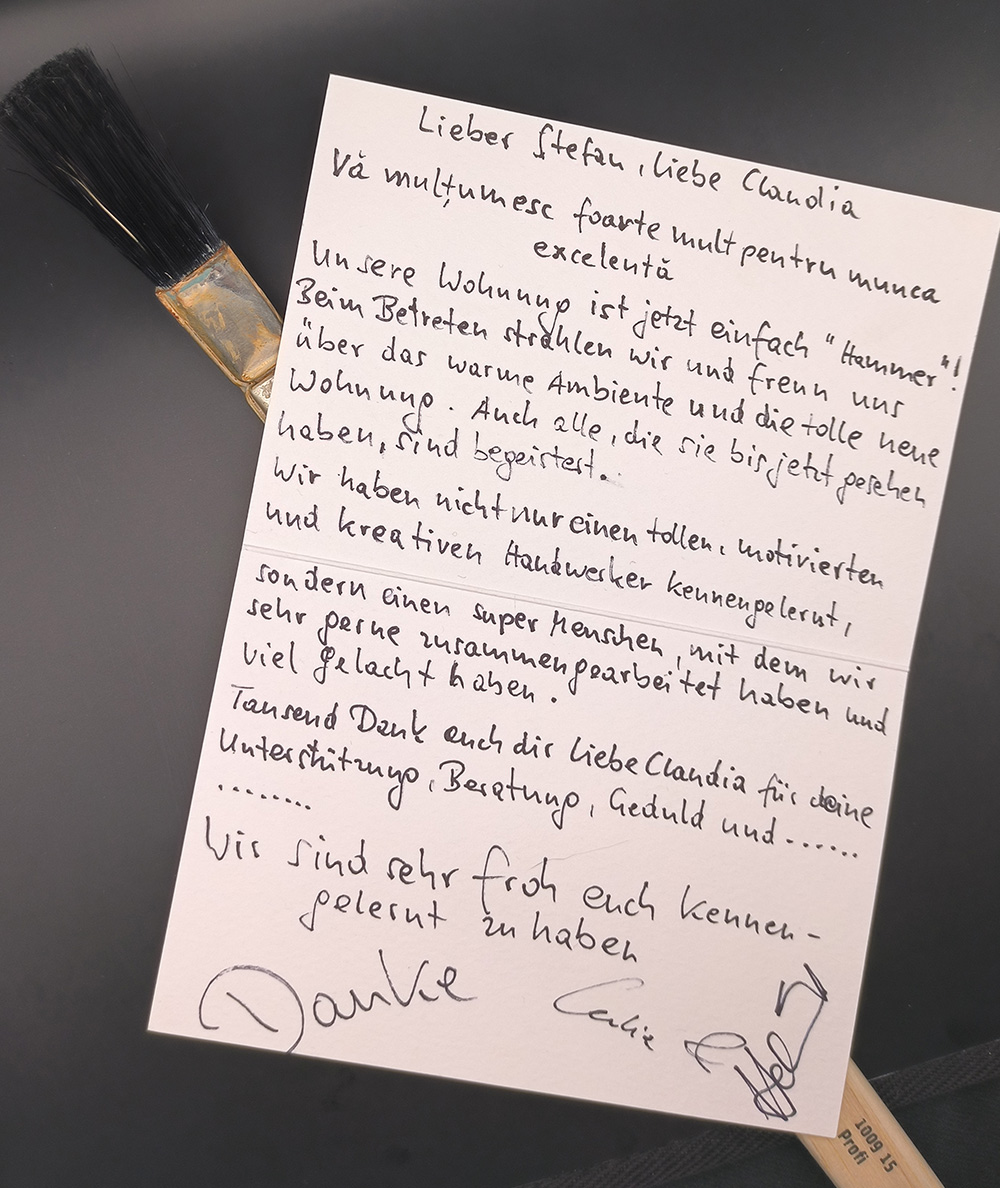 Lieber Stefan, liebe Claudia
Vă mulțumesc foarte mult pentru munca
excelentă
Unsere Wohnung ist jetzt einfach "Hammer"!
Beim Betreten strahlen wir und freun uns
über das warme Ambiente und die tolle neue
Wohnung. Auch alle, die sie bis jetzt gesehen
haben, sind begeistert.
Wir haben nicht nur einen tollen, motivierten
und kreativen Handwerker kennengelernt,
sondern einen super Menschen, mit dem wir
sehr gerne zusammengearbeitet haben und
viel gelacht haben.
Tausend Dank auch dir liebe Claudia für deine
Unterstützung, Beratung, Geduld und ......
........
Wir sind sehr froh euch kennen-
gelernt zu haben
Danke
1009 15
Profi